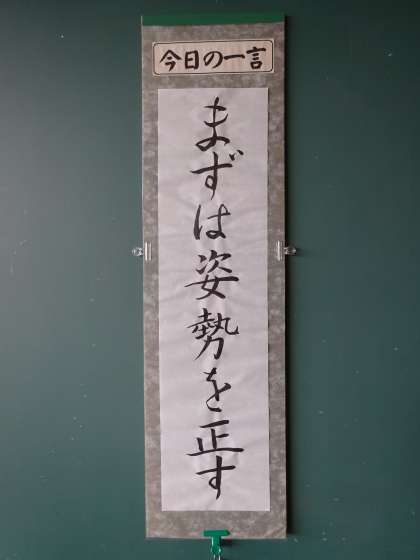 今日の一言
まずは姿勢を正す